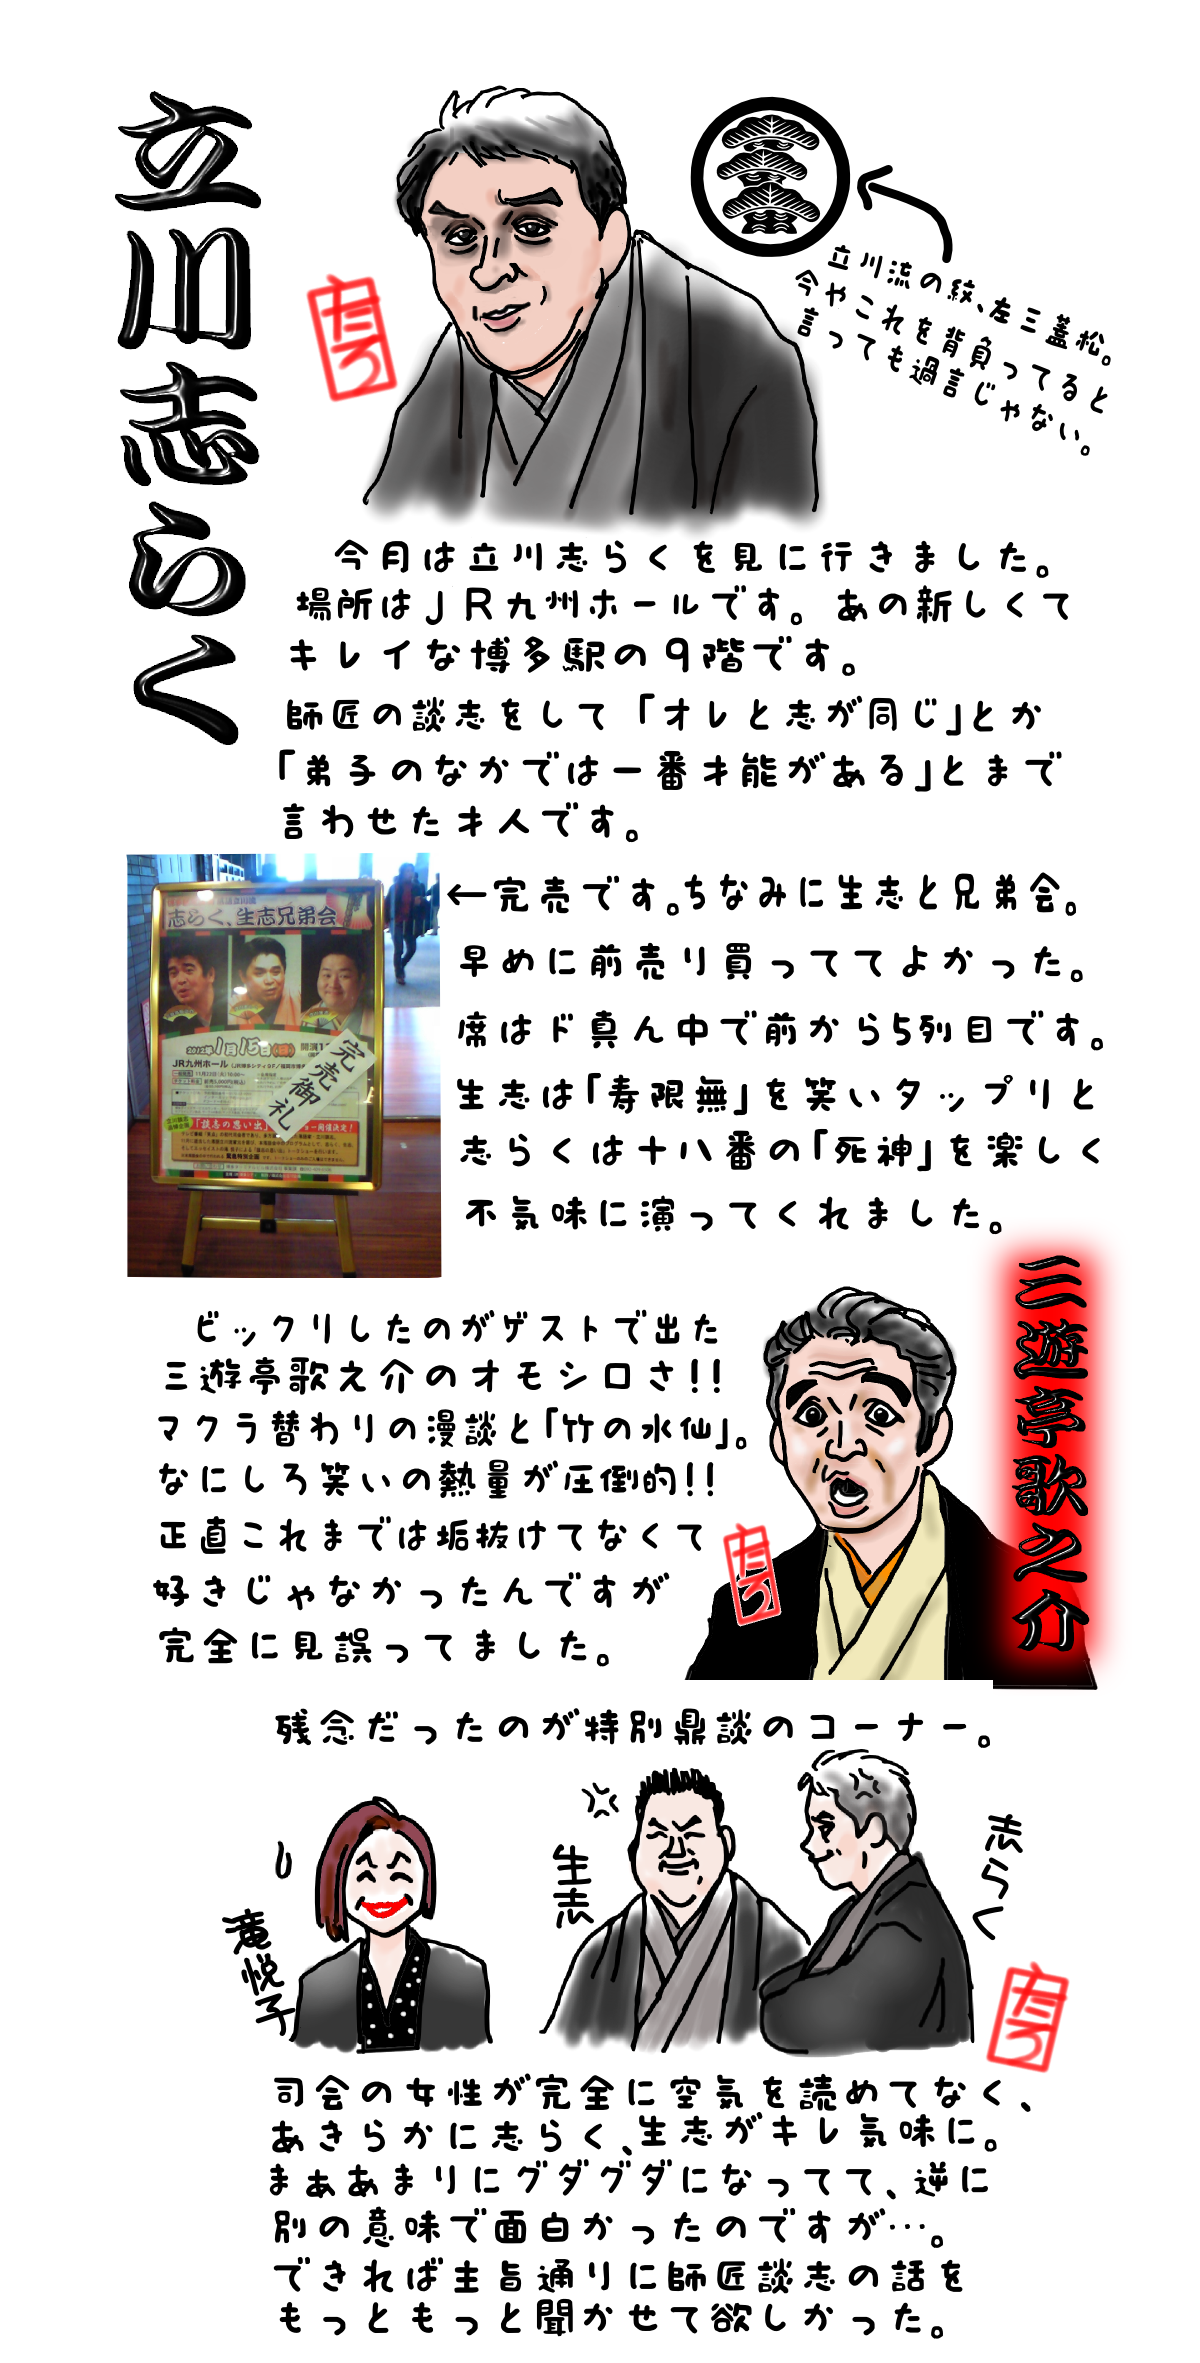 立川志らく
たろ
立川流の紋、左三蓋松。
今やこれを背負ってると
言っても過言じゃない。
今月は立川志らくを見に行きました。
場所はＪＲ九州ホールです。あの新しくて
キレイな博多駅の9階です。
師匠の談志をして「オレと志が同じ」とか
「弟子のなかでは一番才能がある」とまで
言わせた才人です。
志らく、生志兄弟会
2012年1月15日(日)
JR九州ホール
完売御礼
「談志の思い出」
←完売です。ちなみに生志と兄弟会。
早めに前売り買っててよかった。
席はド真ん中で前から5列目です。
生志は「寿限無」を笑いタップリと
志らくは十八番の「死神」を楽しく
不気味に演ってくれました。
三遊亭歌之介
ビックリしたのがゲストで出た
三遊亭歌之介のオモシロさ!!
マクラ替わりの漫談と「竹の水仙」。
なにしろ笑いの熱量が圧倒的!!
正直これまでは垢抜けてなくて
好きじゃなかったんですが
完全に見誤ってました。
たろ
残念だったのが特別鼎談のコーナー。
滝悦子
生志
志らく
たろ
司会の女性が完全に空気を読めてなく、
あきらかに志らく、生志がキレ気味に。
まぁあまりにグダグダになってて、逆に
別の意味で面白かったのですが…。
できれば主旨通りに師匠談志の話を
もっともっと聞かせて欲しかった。